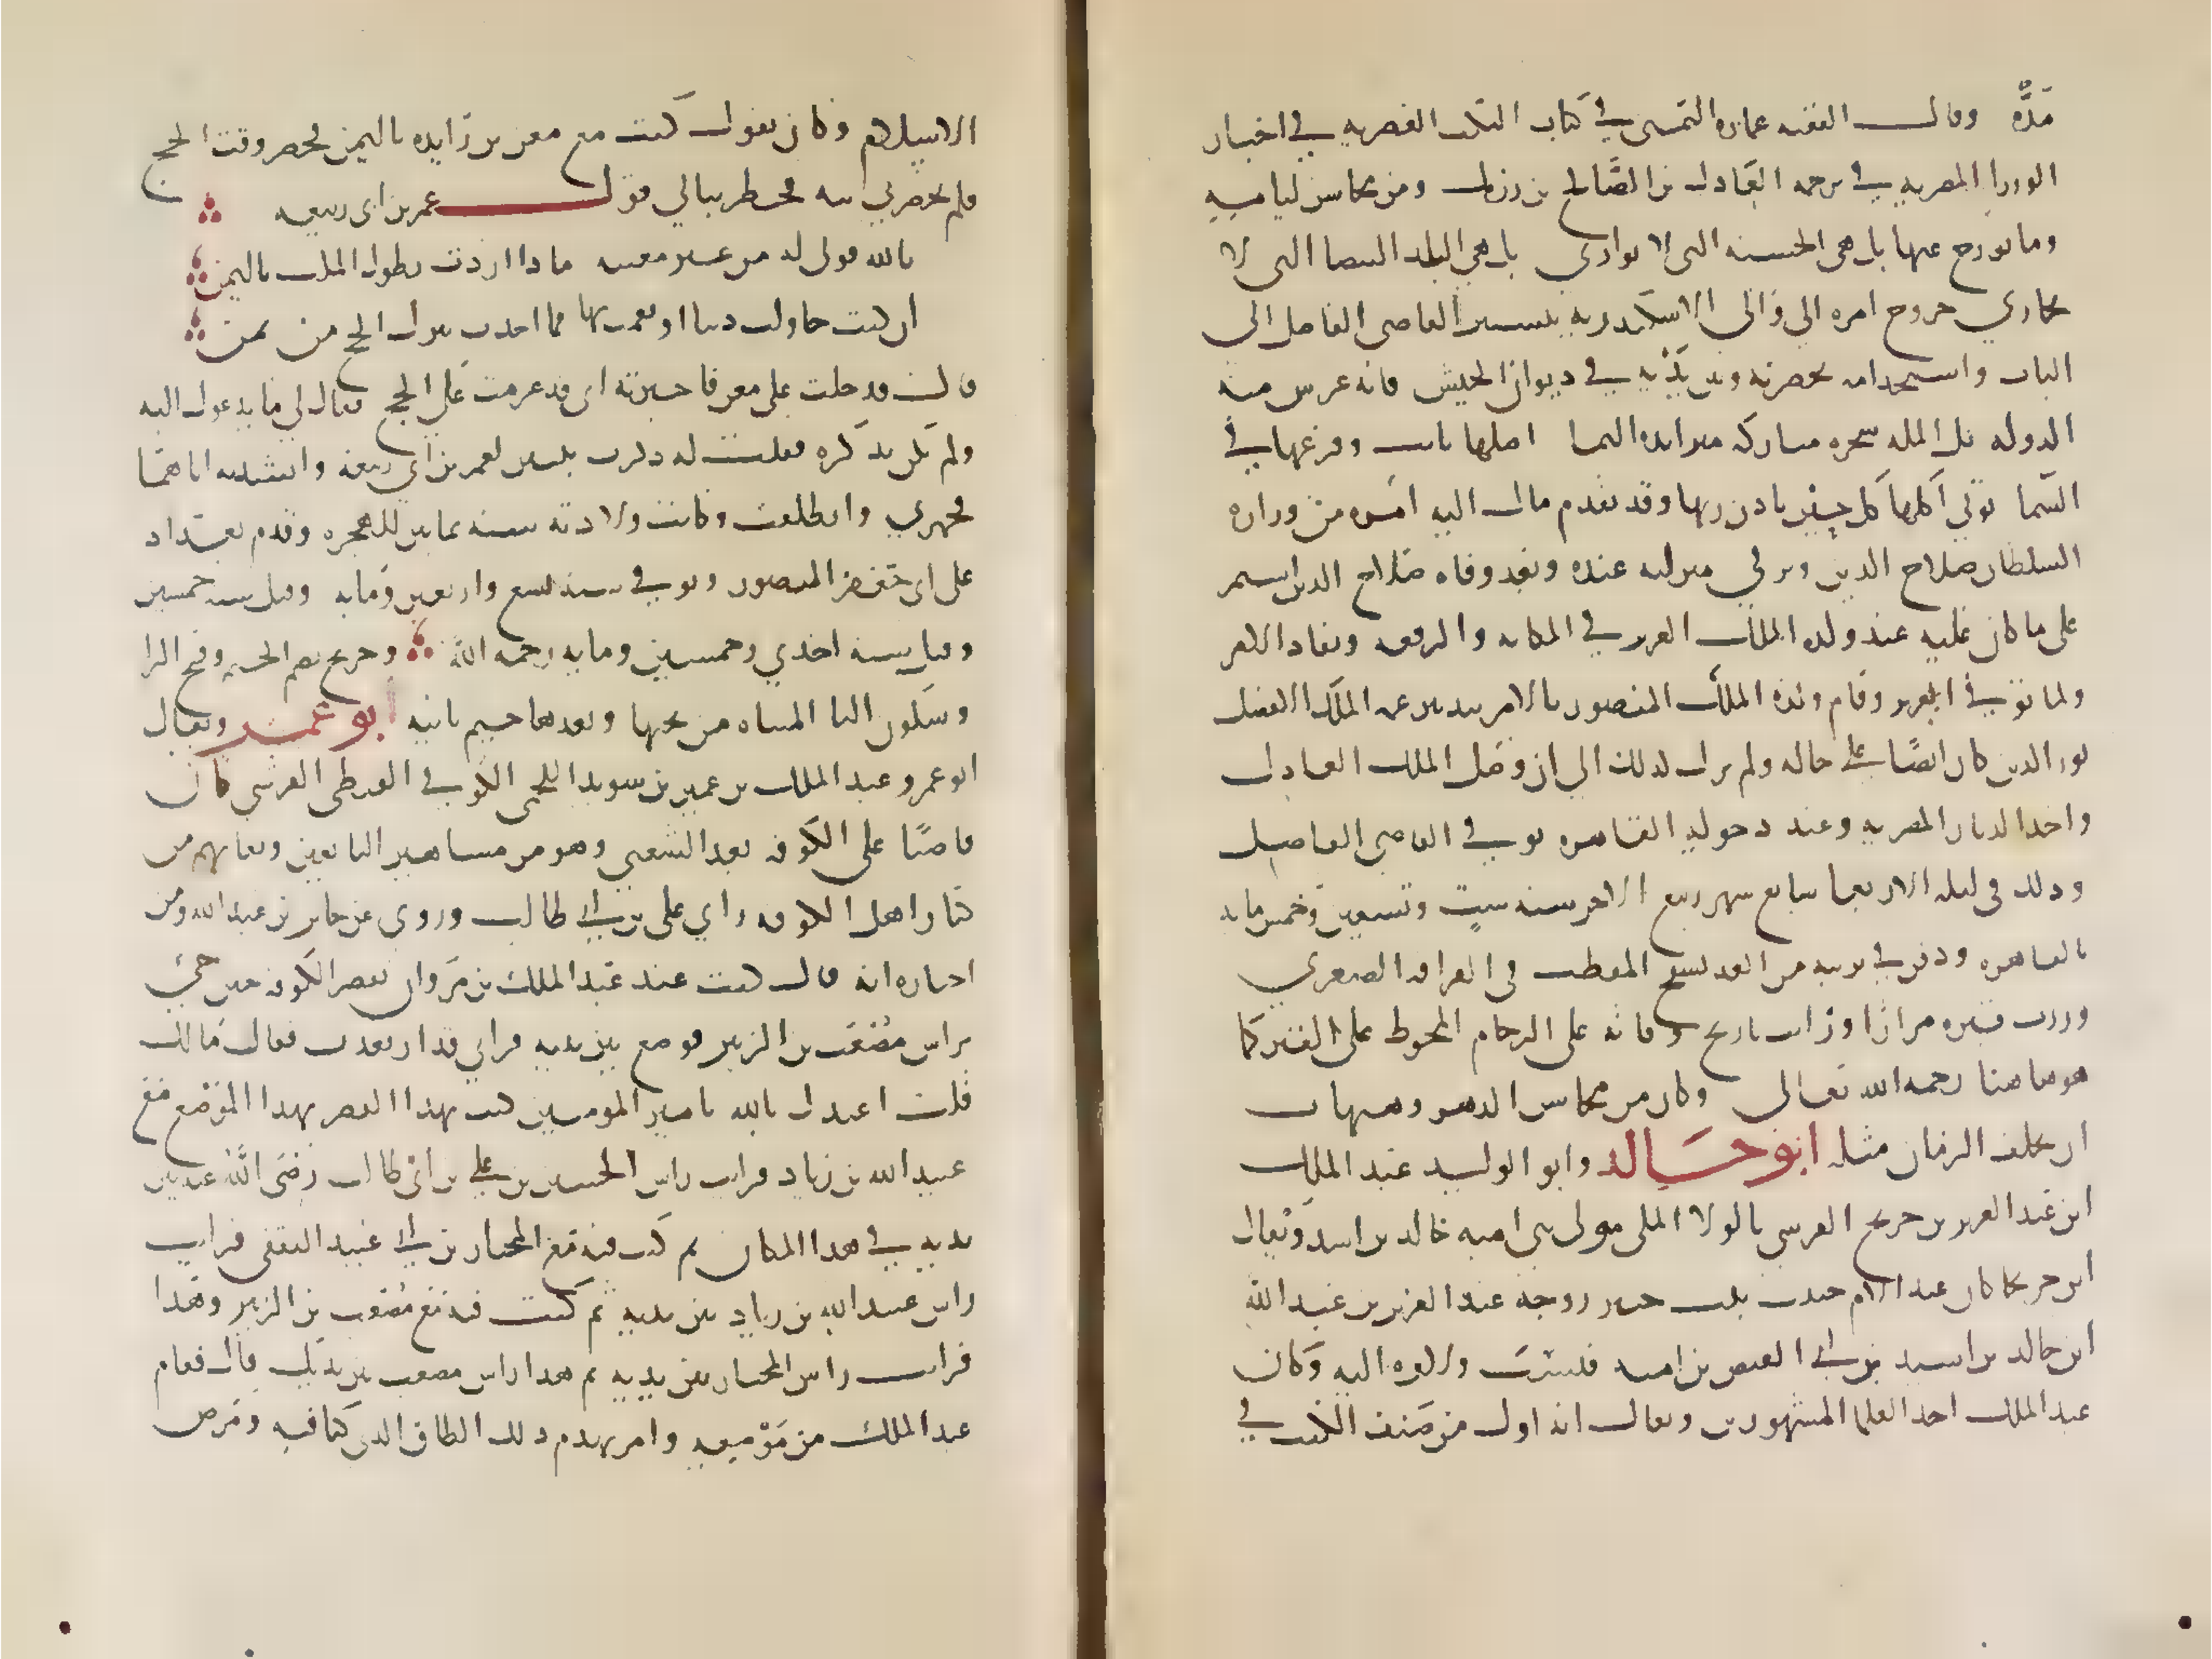 مدة وقال الفقيه عماره اليمني في كتاب النكت العصريه في اخبار
الوزرا المصريه في ترجمه العادل بن الصالح بن رزيك ومن محاسن ايامه
وما يورخ عنها بل هي الحسنه التي لا توازي بل هي اليد البيضا التي لا
تجازي خروج امره الي والي الاسكندريه بتسيير القاضي الفاضل الى
الباب واستخدامه بحضرته وبين يديه في ديوان الجيش فانه غرس منه
الدوله بل للمله شجره مباركه متزايده النما اصلها ثابت وفرعها في
السما توتي اكلها كل حين باذن ربها وقد تقدم مال اليه امره من وزارة
السلطان صلاح الدين وترقي منزلته عنده وبعد وفاه صلاح الدين استمر
على ما كان عليه عند ولده الملك العزيز في المكانه والرفعه ونفاد الامر
ولما توفي العزيز وقام ولده الملك المنصور بالامر بتدبير عمه الملك الافضل
نور الدين كان ايضًا على حاله ولم يزل كذلك الي ان وصل الملك العادل
واخذ الديار المصريه وعند دخوله القاهره توفي القاضي الفاضل
وذلك في ليله الاربعا سابع شهر ربيع الاخر سنه ست وتسعين وخمس مايه
بالقاهره ودفن في تربته من الغد بسفح المقطم في القرافه الصغري
وزرت قبره مرارًا وزايت تاريخ وفاته على الرخام المحوط على القبر كما
هو هاهنا رحمه الله تعالى وكان من محاسن الدهر وهيهات
ان يخلف الزمان مثله ابو خالد وابو الوليد عبد الملك
ابن عبد العزيز بن جريج القرشي بالولا المكي مولى بني اميه خالد بن اسيد ويقال
ان جريجًا كان عبدا لام حبيب بنت جبير زوجة عبد العزيز بن عبد الله
ابن خالد بن اسيد بن ابي العيص بن اميه فنسب ولاوه اليه وكان
عبد الملك احد العلما المشهورين ويقال انه اول من صنف الكتب في
الاسلام وكان يقول كنت مع معن بن زايده باليمن فحضر وقت الحج
فلم يحضرني نيه فخطر ببالي قول عمر بن ابي ربيعه
بالله قولي له من غير معتبه ماذا اردت بطول المكث باليمن
ان كنت حاولت دنيا او نعمت بها فما اخذت بترك الحج من ثمن
قال فدخلت على معن فاخبرته اني قد عزمت على الحج فقال لي ما يدعوك اليه
ولم تكن تذكره فقلت له ذكرت بيتين لعمر بن ابي ربيعة وانشدته اياهما
فجهزني وانطلقت وكانت ولادته سنه ثمانين للهجره وقدم بغداد
على ابي جعفر المنصور وتوفي سنه تسع واربعين ومايه وقيل سنه خمسين
وقيل سنه احدي وخمسين ومايه رحمه الله وجريج بضم الجيم وفتح الرا
وسكون اليا المثناه من تحتها وبعدها جيم ثانيه ابو عمر ويقال
ابو عمرو عبد الملك بن عمير بن سويد اللخمي الكوفي القبطي الفرسي كان
قاضيًا على الكوفه بعد الشعبي وهو من مشاهير التابعين وثقاتهم من
كبار اهل الكوفه راي علي بن ابي طالب وروى عن جابر بن عبد الله ومن
اخباره انه قال كنت عند عبد الملك بن مروان بقصر الكوفه حين جي
براس مصعب بن الزبير فوضع بين يديه فراني قد ارتعدت فقال مالك
قلت اعيذك بالله يا امير المومنين كنت بهذا القصر بهذا الموضع مع
عبيد الله بن زياد فرايت راس الحسين بن علي بن ابي طالب رضي الله عنه بين
يديه في هذا المكان ثم كنت فيه مع المختار بن ابي عبيد الثقفي فرايت
راس عبيد الله بن زياد بين يديه ثم كنت فيه مع مصعب بن الزبير وهذا
فرايت راس المختار بين يديه ثم هذا راس مصعب بين يديك قال فقام
عبد الملك من موضعه وامر بهدم ذلك الطاق الذي كنا فيه ومرض